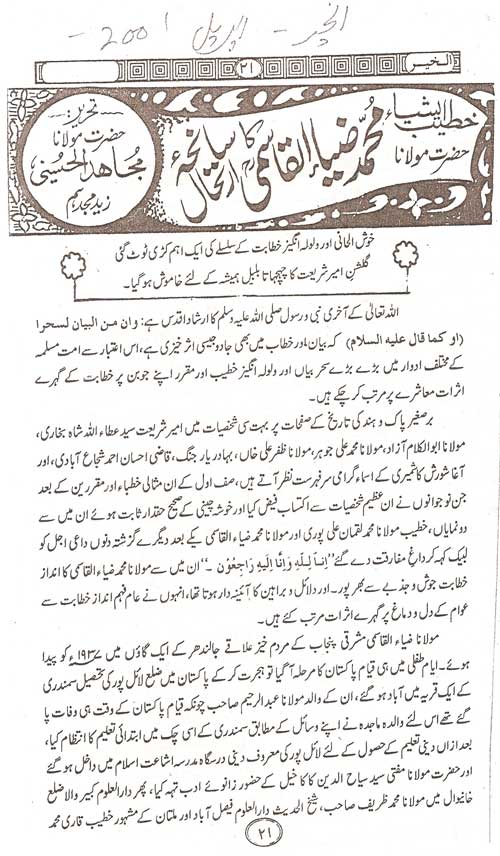 الخیر - اپریل 2001ء
الخیر
۲۱
خطیب ایشیاء
حضرت مولانا
محمد ضیاء القاسمیؒ کا سانحۂ ارتحال
تحریر:
حضرت مولانا
مجاہد الحسینی
زید مجدکم
خوش الحانی اور ولولہ انگیز خطابت کے سلسلے کی ایک اہم کڑی ٹوٹ گئی
گلشن امیر شریعت کا چہچہاتا بلبل ہمیشہ کے لئے خاموش ہو گیا۔
اللہ تعالیٰ کے آخری نبی و رسول صلی اللہ علیہ وسلم کا ارشاد اقدس ہے: وان من البیان لسحرا
(او کما قال علیہ السلام) کہ بیان اور خطاب میں بھی جادو جیسی اثر خیزی ہے، اس اعتبار سے امت مسلمہ
کے مختلف ادوار میں بڑے بڑے سحر بیاں اور ولولہ انگیز خطیب اور مقرر اپنے جوبن پر خطابت کے گہرے
اثرات معاشرے پر مرتب کر چکے ہیں۔
برصغیر پاک و ہند کی تاریخ کے صفحات پر بہت سی شخصیات میں امیر شریعت سید عطاء اللہ شاہ بخاری،
مولانا ابوالکلام آزاد، مولانا محمد علی جوہر، مولانا ظفر علی خاں، بہادر یار جنگ، قاضی احسان احمد شجاع آبادی، اور
آغا شورش کاشمیری کے اسماء گرامی سر فہرست نظر آتے ہیں، صف اول کے ان مثالی خطباء اور مقررین کے بعد
جن نوجوانوں نے ان عظیم شخصیات سے اکتساب فیض کیا اور خوشہ چینی کے صحیح حقدار ثابت ہوئے ان میں سے
دو نمایاں، خطیب مولانا محمد لقمان علی پوری اور مولانا محمد ضیاء القاسمی یکے بعد دیگرے گزشتہ دنوں داعی اجل کو
لبیک کہہ کر داغ مفارقت دے گئے "اِنّا لِلّٰہِ وَاِنّا اِلَیْہِ رَاجِعُوْن"۔ ان میں سے مولانا محمد ضیاء القاسمی کا انداز
خطابت جوش و جذبے سے بھرپور۔ اور دلائل و براہین کا آئینہ دار ہوتا تھا، انہوں نے عام فہم انداز خطابت سے
عوام کے دل و دماغ پر گہرے اثرات مرتب کئے ہیں۔
مولانا ضیاء القاسمی مشرقی پنجاب کے مردم خیز علاقے جالندھر کے ایک گاؤں میں ۱۹۳۷ء کو پیدا
ہوئے۔ ایام طفلی میں ہی قیام پاکستان کا مرحلہ آ گیا تو ہجرت کر کے پاکستان میں ضلع لائل پور کی تحصیل سمندری
کے ایک قریہ میں آباد ہو گئے، ان کے والد مولانا عبدالرحیم صاحب چونکہ قیام پاکستان کے وقت ہی وفات پا
گئے تھے اس لئے والدہ ماجدہ نے اپنے وسائل کے مطابق سمندری کے اسی چک میں ابتدائی تعلیم کا انتظام کیا،
بعد ازاں دینی تعلیم کے حصول کے لئے لائل پور کی معروف دینی درسگاہ مدرسہ اشاعت اسلام میں داخل ہو گئے
اور حضرت مولانا مفتی سید سیاح الدین کاکاخیل کے حضور زانوئے ادب تہہ کیا، پھر دارالعلوم کبیر والا ضلع
خانیوال میں مولانا محمد ظریف صاحب، شیخ الحدیث دارالعلوم فیصل آباد اور ملتان کے مشہور خطیب قاری محمد
۲۱